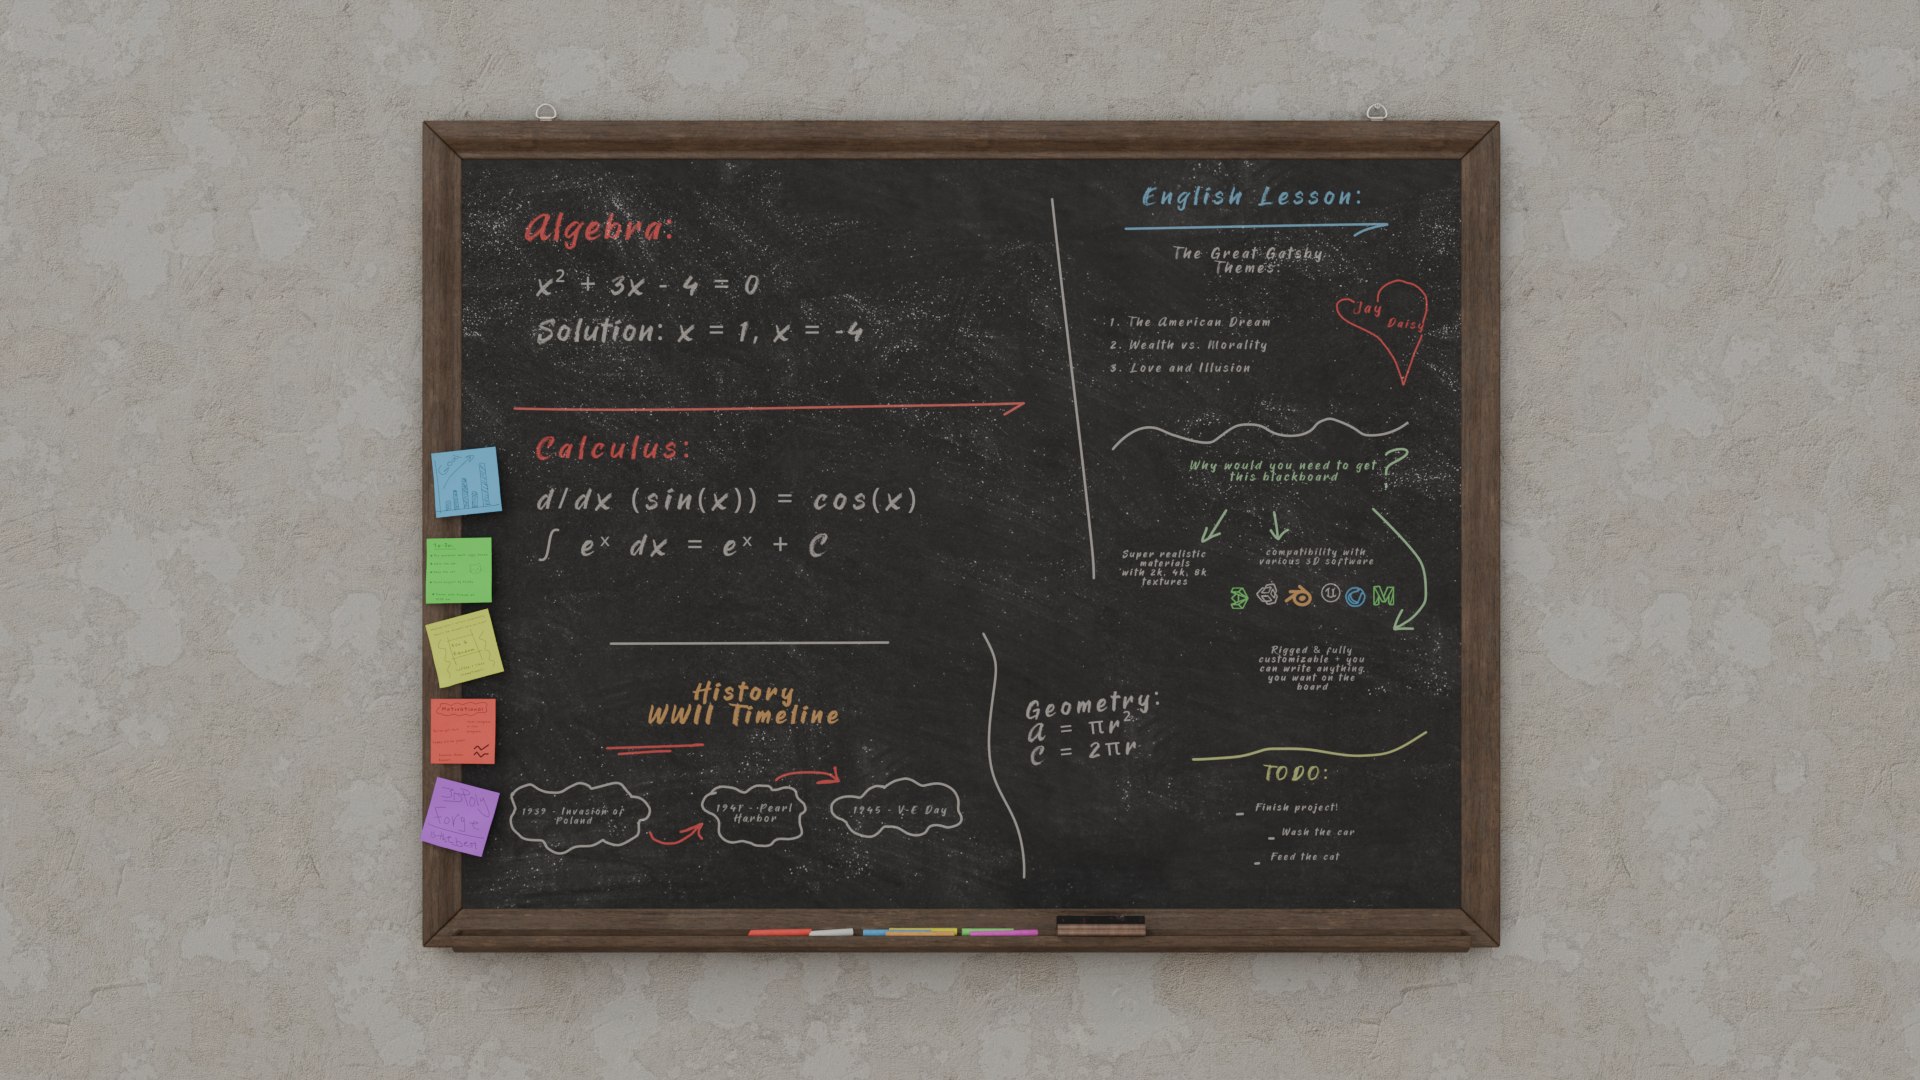 Algebra:
x² + 3x - 4 = 0
Solution: x = 1, x = -4
Calculus:
d/dx (sin(x)) = cos(x)
∫ eˣ dx = eˣ + C
History
WWII Timeline
1939 - Invasion of
Poland
1941 - Pearl
Harbor
1945 - V-E Day
English Lesson:
The Great Gatsby
Themes:
1. The American Dream
2. Wealth vs. Morality
3. Love and Illusion
Jay
Daisy
Why would you need to get
this blackboard
?
Super realistic
materials
with 2k, 4k, 8k
textures
compatibility with
various 3D software
Rigged & fully
customizable + you
can write anything
you want on the
board
Geometry:
A = πr²
C = 2πr
TODO:
- Finish project!
- Wash the car
- Feed the cat
To Do:
Motivational
Forge